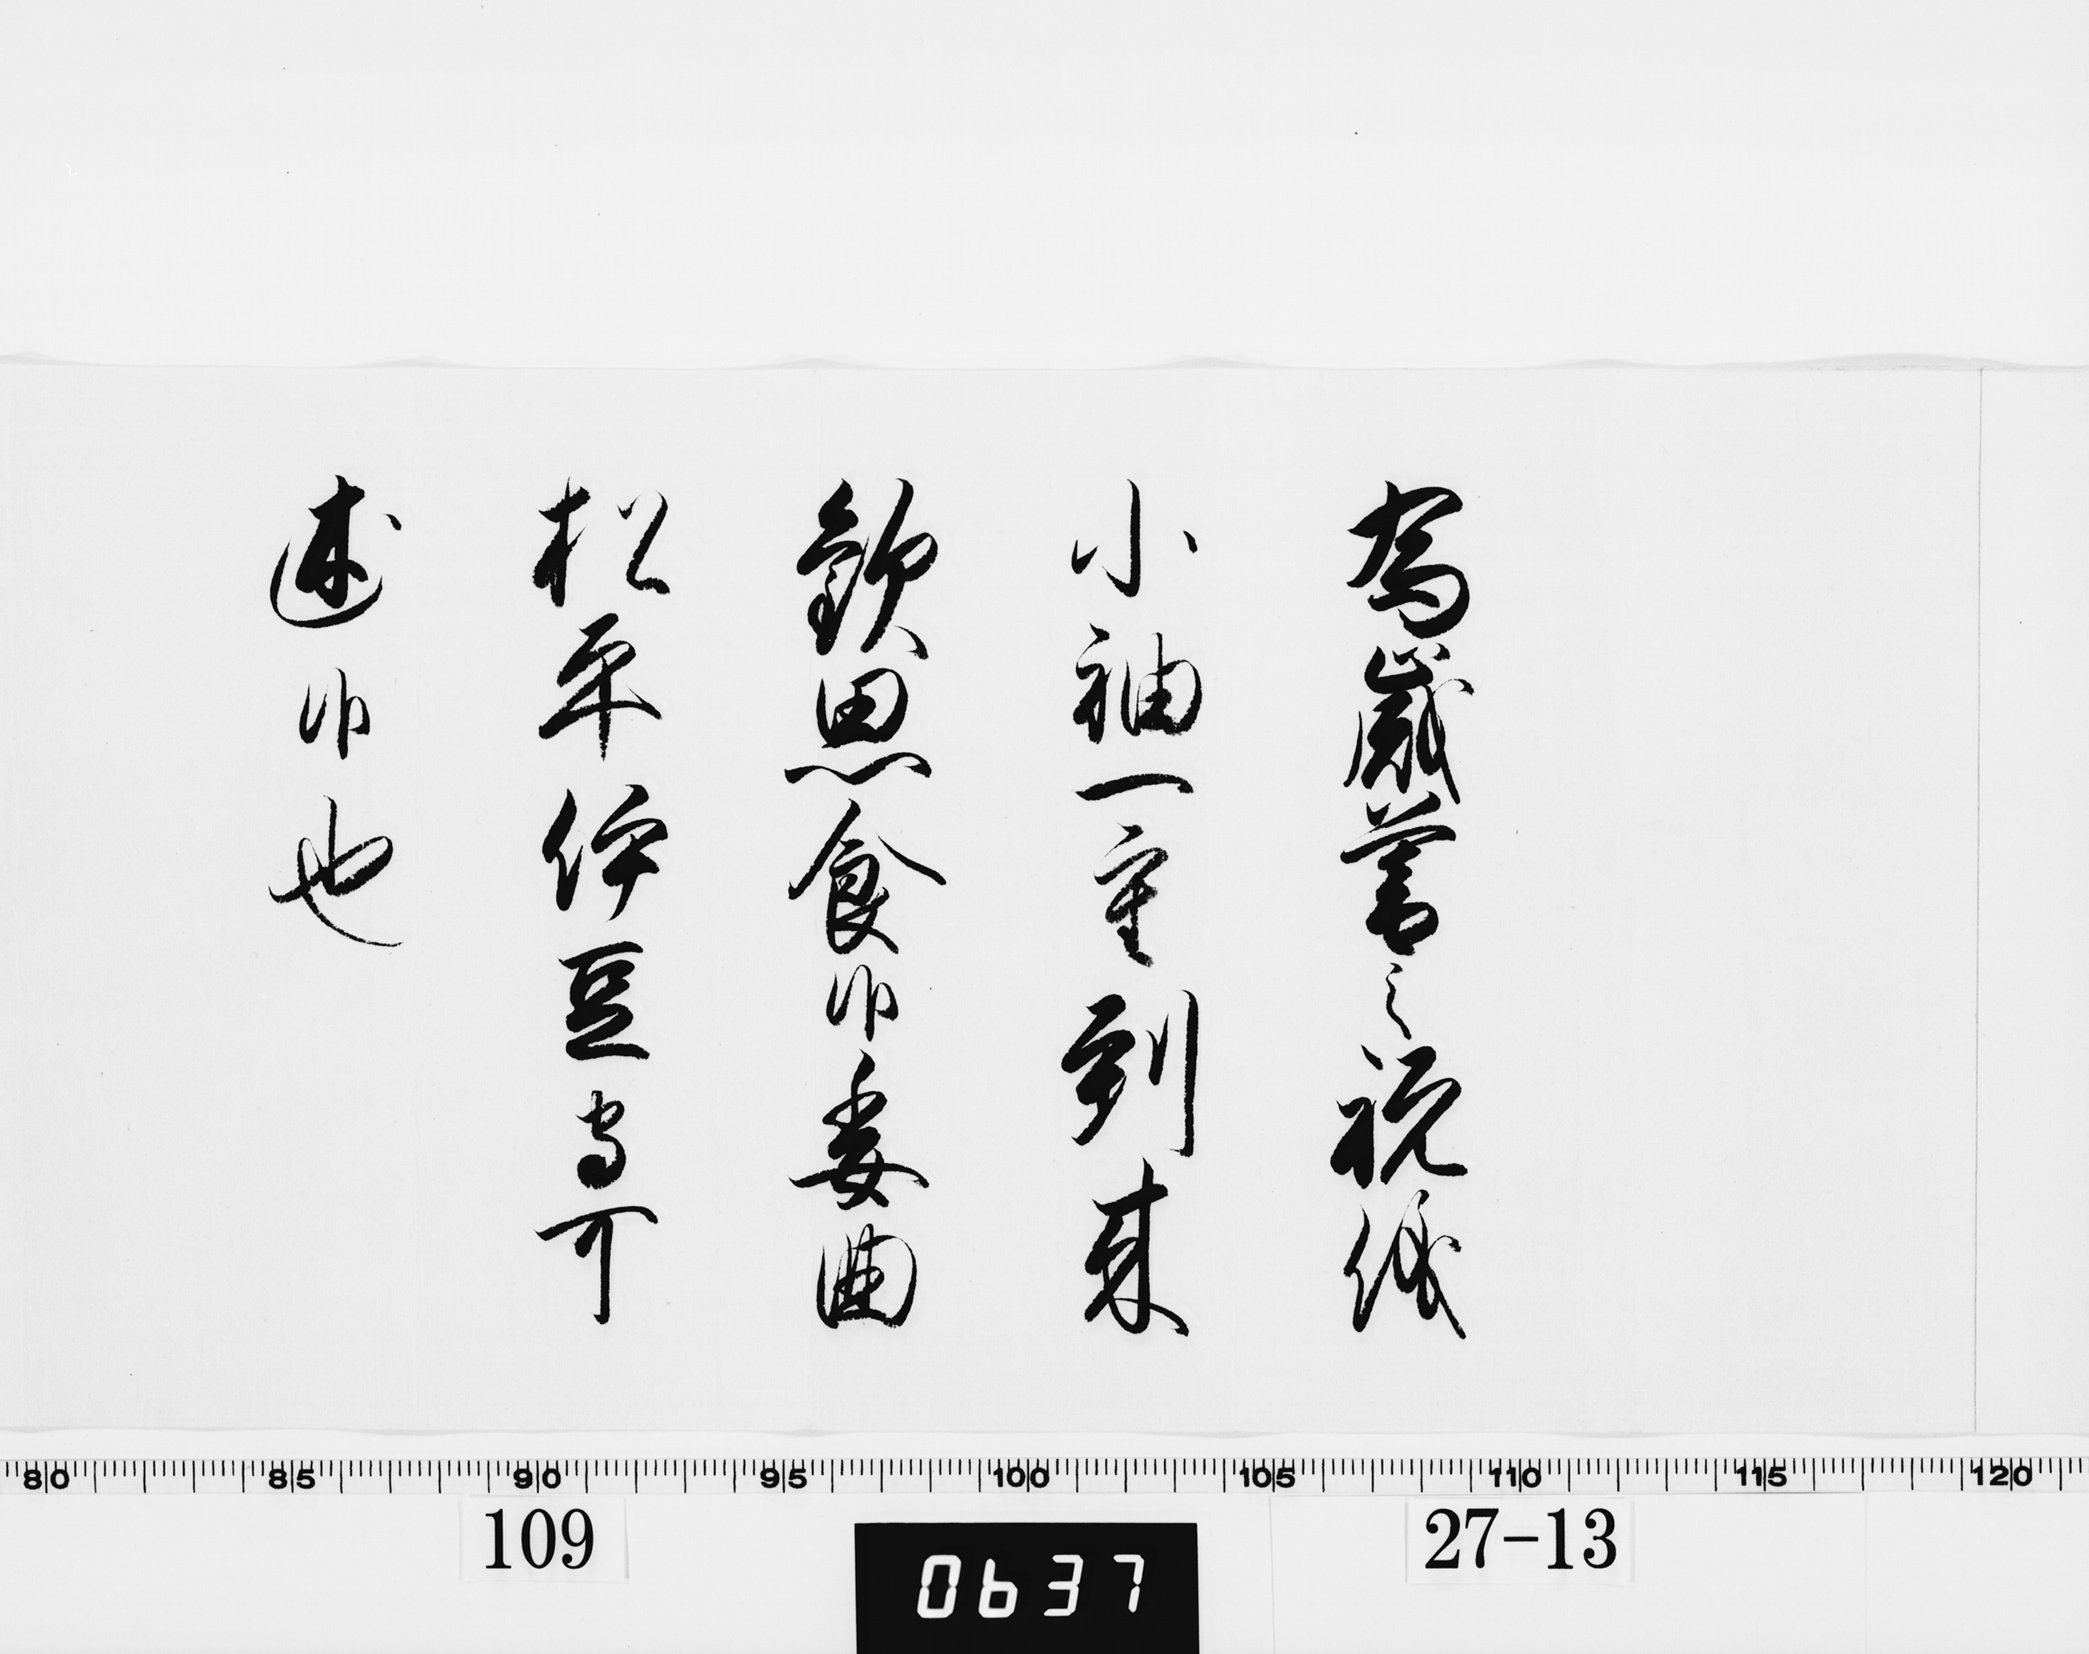 為歳暮之祝儀
小袖一重到来
歓思食候委曲
松平伊豆守可
述候也
80 85 90 95 100 105 110 115 120
109
0637
27-13